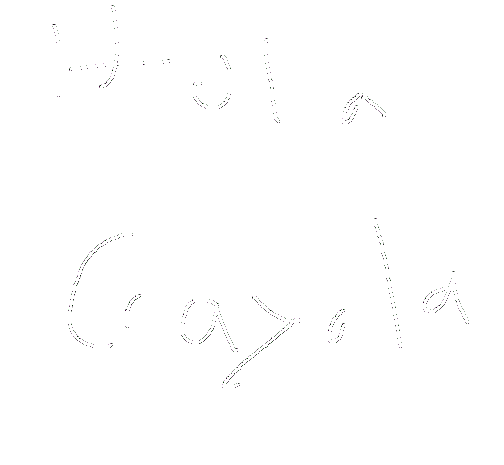 Hola
Crayola